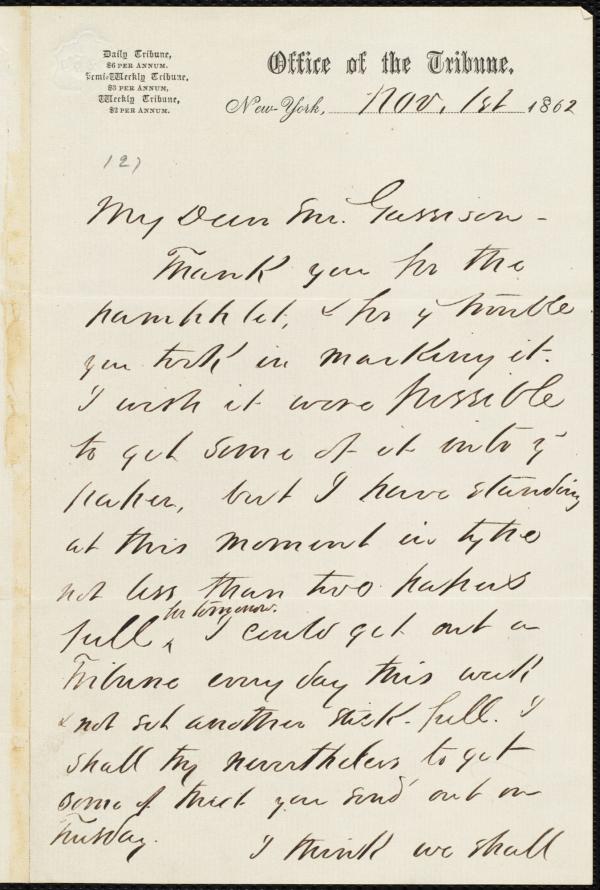 Daily Tribune,
$6 PER ANNUM.
Semi-Weekly Tribune,
$3 PER ANNUM,
Weekly Tribune,
$2 PER ANNUM.
Office of the Tribune.
New-York, Nov. 1st 1862
(2)
My Dear Mr. Garrison -
Thank you for the
pamphlet, & for y trouble
you took in marking it.
I wish it were possible
to get some of it into y
paper, but I have standing
at this moment in type
not less than two papers
for tomorrow.
full ^ I could get out a
Tribune every day this week
& not set another stick-full. I
shall try nevertheless to get
some of that you send out on
Tuesday.
I think we shall